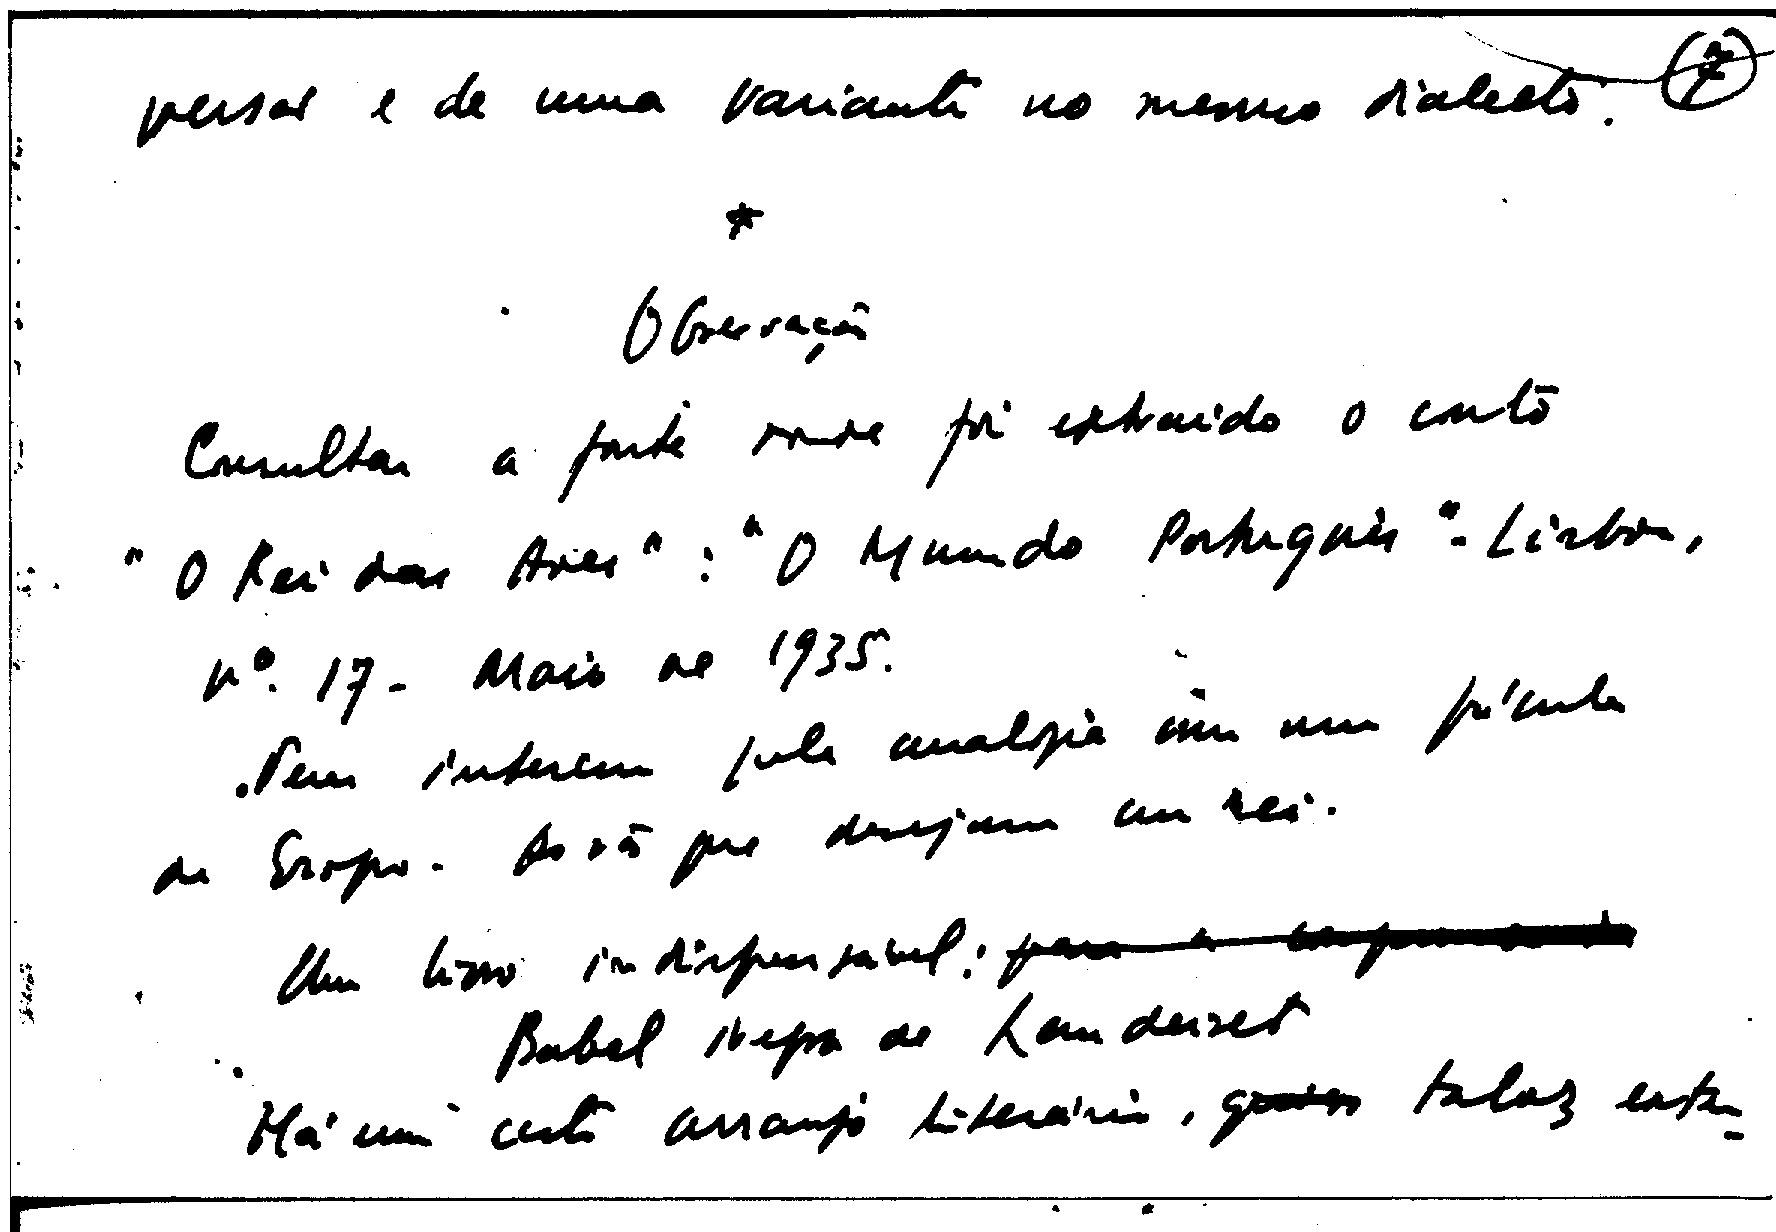 7
versos e de uma variante no mesmo dialecto.
*
Observação
Consultar a fonte onde foi extraido o conto
"O Rei das Aves": "O Mundo Português" - Lisboa,
nº. 17 - Maio de 1935.
Tem interesse pela analogia com uma fábula
de Esopo. As rãs que desejam um rei.
Um livro indispensável: para a compreensão da
Babel Negra de Landerset
Há um certo arranjo literário, quiçá talvez entu-